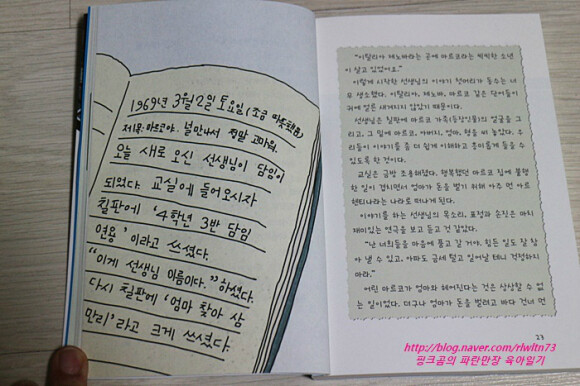 1969년 3월 2일 토요일 (조금 따뜻했음)
제목: 마르코야. 널 만나서 정말 고마워.
오늘 새로 오신 선생님이 담임이
되었다. 교실에 들어오시자
칠판에 '4학년 3반 담임
연용'이라고 쓰셨다.
"이게 선생님 이름이다." 하셨다.
다시 칠판에 '엄마 찾아 삼
만리'라고 크게 쓰셨다.
"이탈리아 제노바라는 곳에 마르코라는 씩씩한 소년
이 살고 있었어요."
이렇게 시작한 선생님의 이야기 첫머리가 들수는 너
무 생소했다. 이탈리아, 제노바, 마르코 같은 단어들이
귀에 얼른 새겨지지 않았기 때문이다.
선생님은 칠판에 마르코 가족(등장인물)의 얼굴을 그
리고, 그 밑에 마르코, 아버지, 엄마, 형을 써 놓았다. 우
리들이 이야기를 좀 더 쉽게 이해하고 흥미롭게 들을 수
있도록 한 것이다.
교실은 금방 조용해졌다. 행복했던 마르코 집에 불행
한 일이 겹치면서 엄마가 돈을 벌기 위해 아주 먼 아르
헨티나라는 나라로 떠나게 된다.
이야기를 하는 선생님의 목소리, 표정과 손짓은 마치
재미있는 연극을 보고 듣고 한 것 같았다.
"난 너희들을 마음에 품고 갈 거야. 힘든 일도 잘 참
아 낼 수 있고. 아파도 금세 털고 일어날 테니 걱정하지
마라."
어린 마르코가 엄마와 헤어진다는 것은 상상할 수 없
는 일이었다. 더구나 엄마가 돈을 벌려고 바다 건너 먼
23
http://blog.naver.com/rlwltn73
핑크곰의 파란만장 육아일기